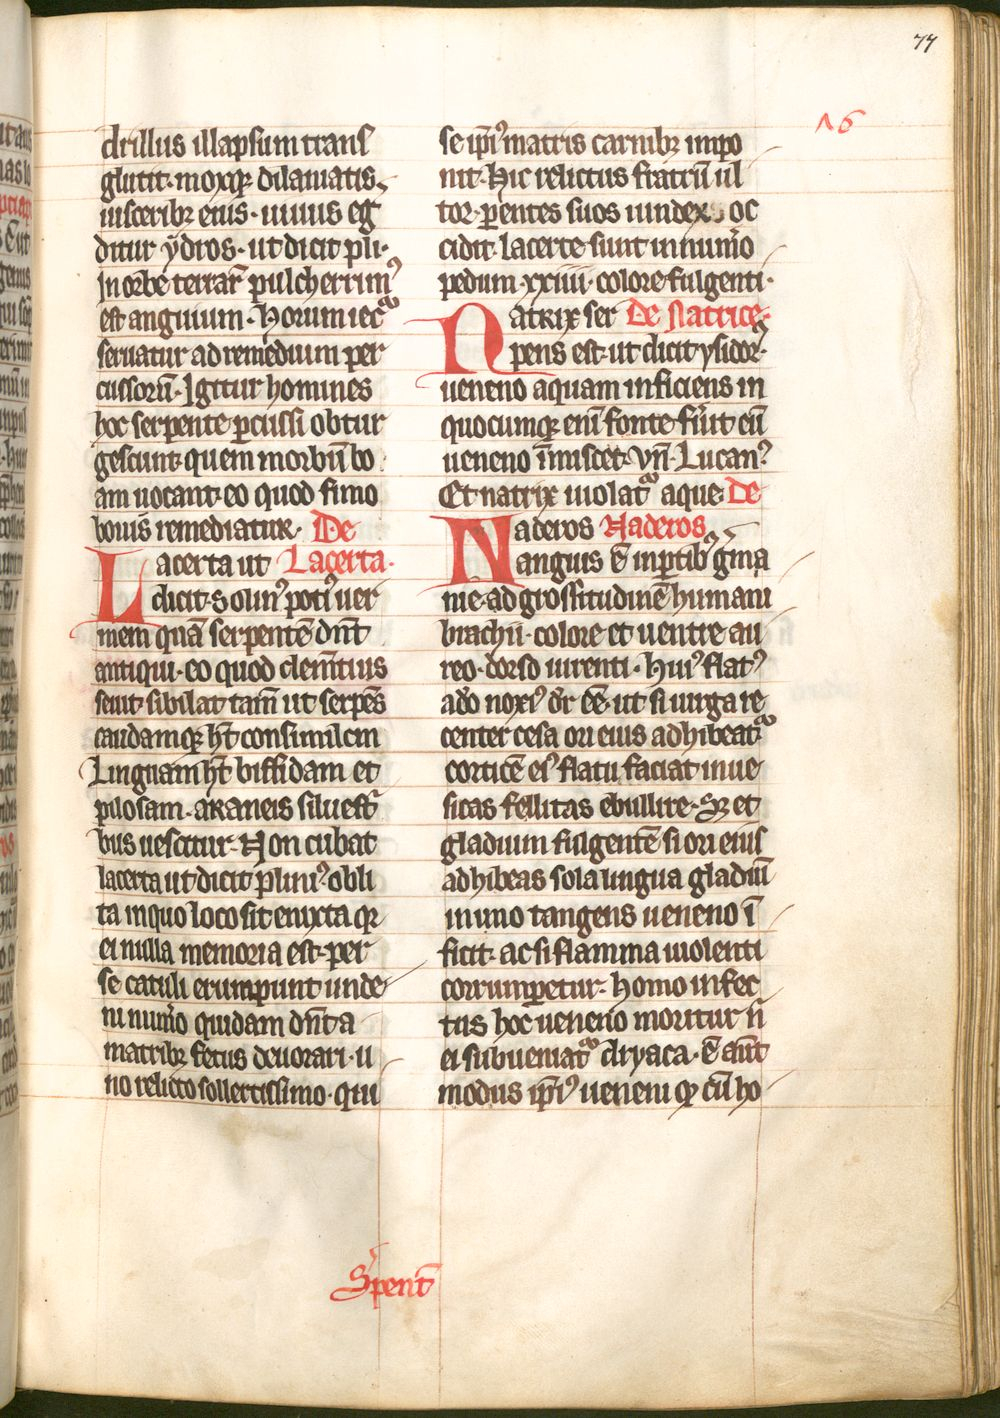 77
16
drillus illapsum trans
glutit· moxqꝫ dilaniatis
uisceribꝫ eius· uiuus eg
ditur ẏdros· ut dicit pli·
In orbe terrarꝝ pulcherrim᷒
est anguium· Horum iecᷓ
seruatur ad remedium per
cussorū· Igitur homines
hoc serpente ꝑcussi obtur
gescunt· quem morbū bo
am uocant· eo quod fimo
bouis remediatur· De
Lacerta ut Lacerta·
dicit· Solin᷒ poti᷒ uer
mem quā serpentē dn̄t
antiqui· eo quod clemētius
seuit· sibilat tam̄ ut serpēs
caudamqꝫ hꝫt consimilem
Linguam hꝫt biffidam et
pilosam· araneis siluestri
bus uescitur· Non cubat
lacerta ut dicit plini᷒ obli
ta in quo loco sit enixta qꝫ
ei nulla memoria est· per
se catuli erumpunt unde
ni num̄o quidam dn̄t a
matribꝫ fetus deuorari· u
no relicto sollertissimo· qui
se ip̄i᷒ matris carnibꝫ impo
nit· Hic relictus fratrū ul
tor· ꝑentes suos iundex oc
cidit· lacerte sunt in num̄o
pedum· xxiiii· colore fulgenti·
Natrix ser De Natrice·
pens est· ut dicit ysidor᷒
ueneno aquam inficiens in
quocumqꝫ enī fonte fu̾it eū
ueneno īmiscet· vn̄· Lucan᷒
Et natrix uiolatᷓ aque· De
Naderos Naderos
anguis ē in ꝑtibꝰ g̾ma
nie· ad grossitudinē humani
brachii· colore et uentre au
reo· dorso uirenti· Hui᷒ flat᷒
adō noxi᷒ dr̄ eē· ut si uirga re
center cesa ori eius adhibeatᷓ
corticē ei᷒ flatu faciat in ue
sicas fellitas ebullire· Sꝫ et
gladium fulgentē si ori eius
adhibeas sola lingua gladiū
in uno tangens ueneno ī
ficit· ac si flamma uiolenti
corrumꝑetur· homo infec
tus hoc ueneno moritur n̄
ei subueniatᷓ dryaca· ē aūt
modus ip̄i᷒ ueneni qꝫ cū ho
S̾pent̄